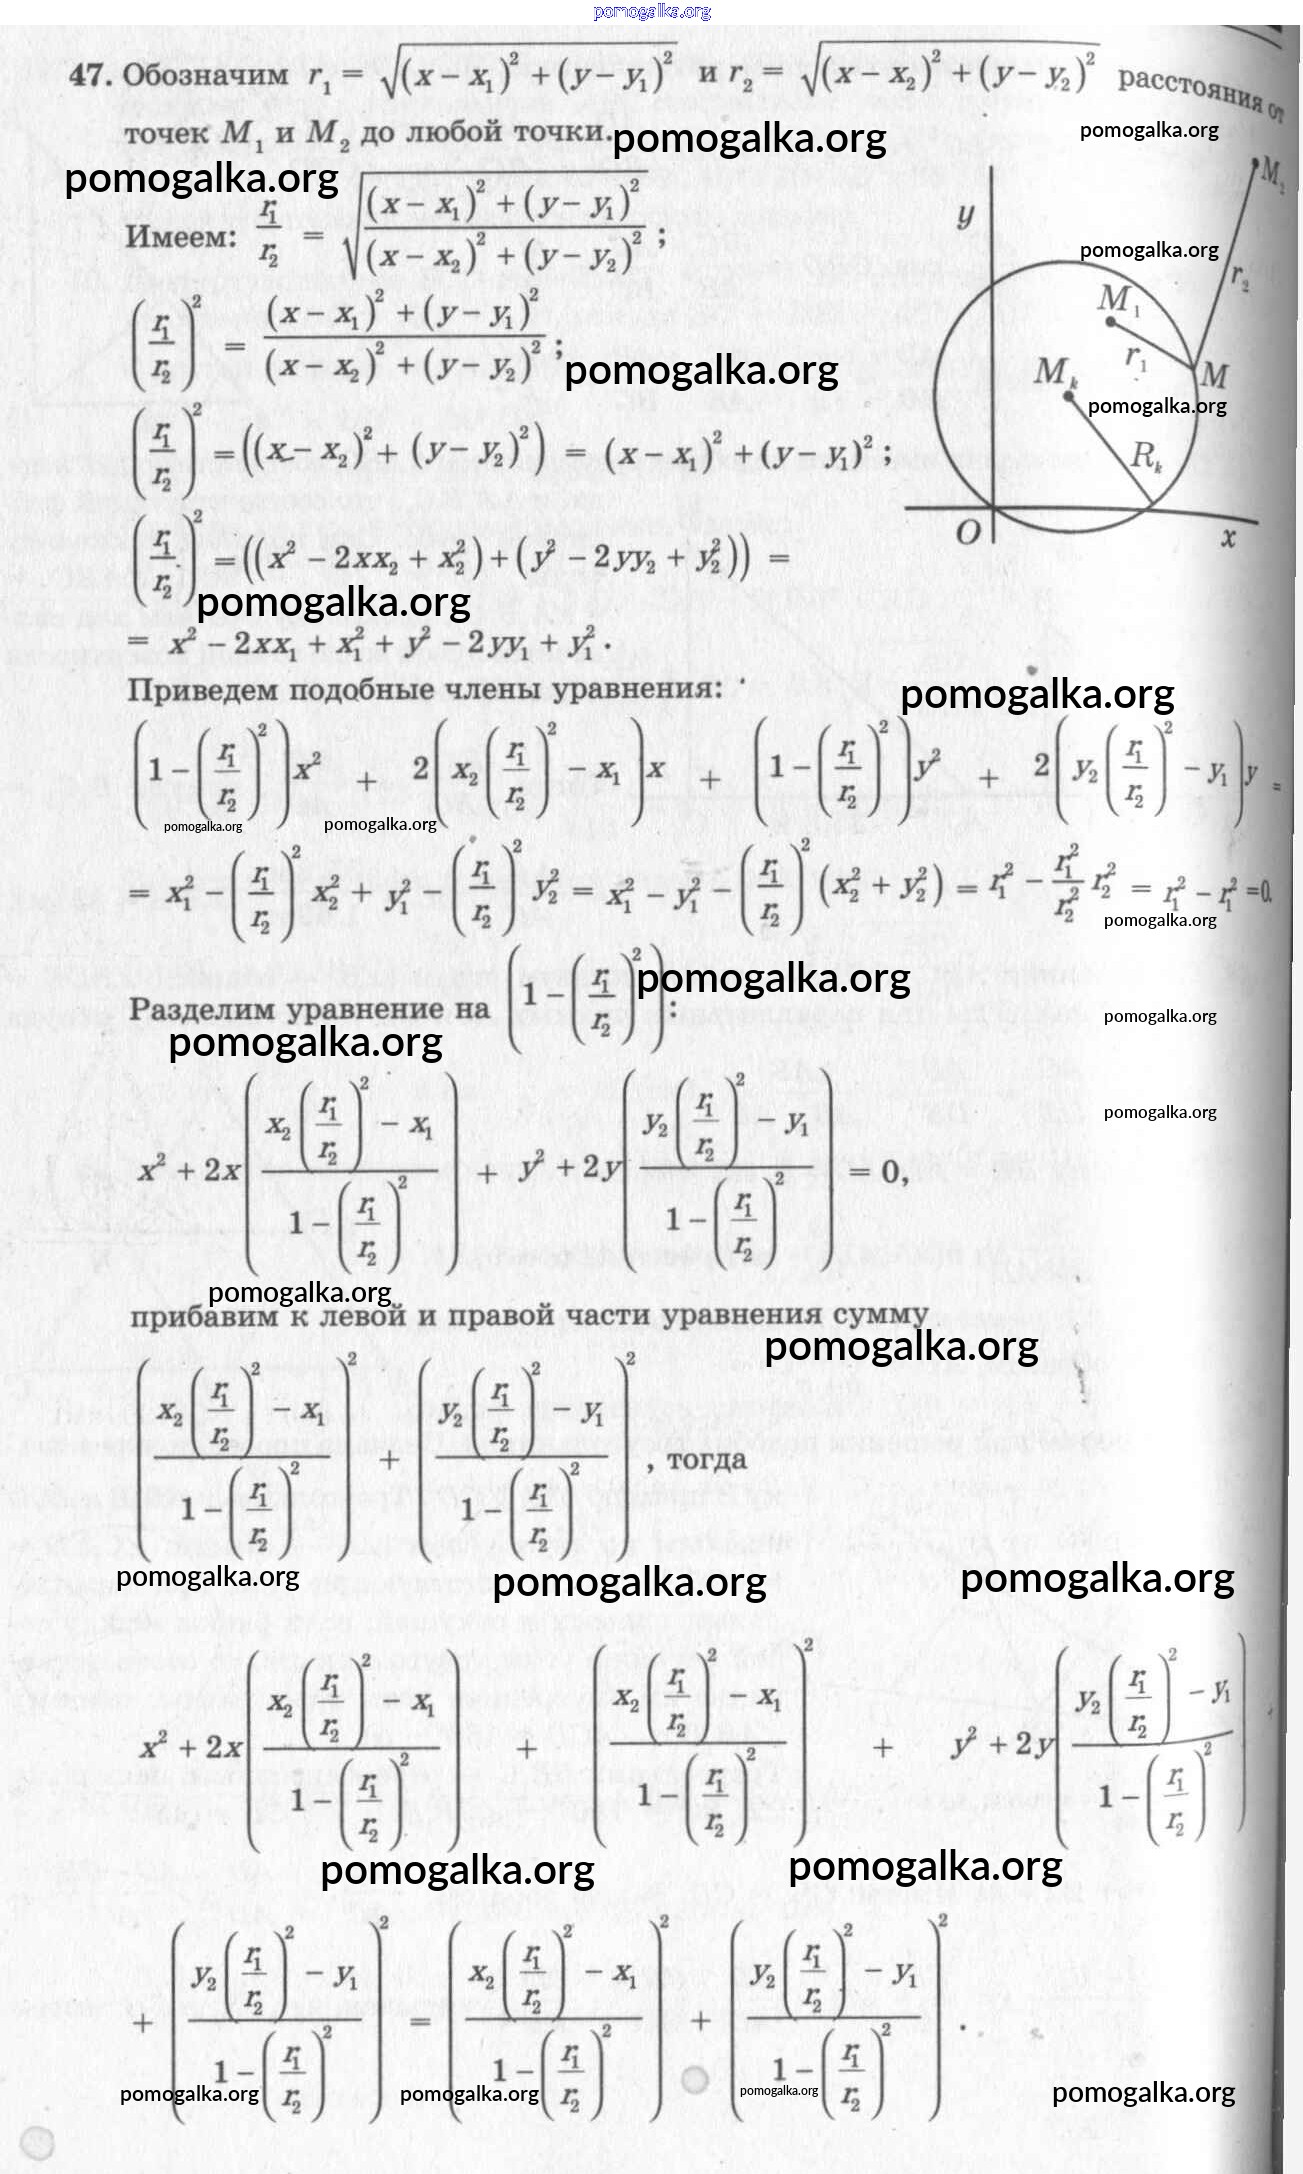 pomogalka.org
47. Обозначим r₁ = √((x – x₁)² + (y – y₁)²) и r₂ = √((x – x₂)² + (y – y₂)²) расстояния от
точек M₁ и M₂ до любой точки.
pomogalka.org
pomogalka.org
pomogalka.org
Имеем: r₁/r₂ = √(((x – x₁)² + (y – y₁)²)/((x – x₂)² + (y – y₂)²)) ;
(r₁/r₂)² = ((x – x₁)² + (y – y₁)²)/((x – x₂)² + (y – y₂)²) ;
pomogalka.org
(r₁/r₂)² = ((x – x₂)² + (y – y₂)²) = (x – x₁)² + (y – y₁)² ;
(r₁/r₂)² = ((x² – 2xx₂ + x₂²) + (y² – 2yy₂ + y₂²)) =
pomogalka.org
= x² – 2xx₁ + x₁² + y² – 2yy₁ + y₁² .
y
M₂
pomogalka.org
r₂
M₁
r₁
M
Mₖ
pomogalka.org
Rₖ
O
x
Приведем подобные члены уравнения:
pomogalka.org
(1 – (r₁/r₂)²)x² + 2(x₂(r₁/r₂)² – x₁)x + (1 – (r₁/r₂)²)y² + 2(y₂(r₁/r₂)² – y₁)y =
pomogalka.org
pomogalka.org
= x₁² – (r₁/r₂)² x₂² + y₁² – (r₁/r₂)² y₂² = x₁² – y₁² – (r₁/r₂)² (x₂² + y₂²) = r₁² – r₁²/r₂² r₂² = r₁² – r₁² = 0.
pomogalka.org
Разделим уравнение на (1 – (r₁/r₂)²):
pomogalka.org
pomogalka.org
pomogalka.org
x² + 2x((x₂(r₁/r₂)² – x₁)/(1 – (r₁/r₂)²)) + y² + 2y((y₂(r₁/r₂)² – y₁)/(1 – (r₁/r₂)²)) = 0,
pomogalka.org
pomogalka.org
прибавим к левой и правой части уравнения сумму
pomogalka.org
((x₂(r₁/r₂)² – x₁)/(1 – (r₁/r₂)²))² + ((y₂(r₁/r₂)² – y₁)/(1 – (r₁/r₂)²))² , тогда
pomogalka.org
pomogalka.org
pomogalka.org
x² + 2x((x₂(r₁/r₂)² – x₁)/(1 – (r₁/r₂)²)) + ((x₂(r₁/r₂)² – x₁)/(1 – (r₁/r₂)²))² + y² + 2y((y₂(r₁/r₂)² – y₁)/(1 – (r₁/r₂)²))
pomogalka.org
pomogalka.org
+ ((y₂(r₁/r₂)² – y₁)/(1 – (r₁/r₂)²))² = ((x₂(r₁/r₂)² – x₁)/(1 – (r₁/r₂)²))² + ((y₂(r₁/r₂)² – y₁)/(1 – (r₁/r₂)²))² .
pomogalka.org
pomogalka.org
pomogalka.org
pomogalka.org